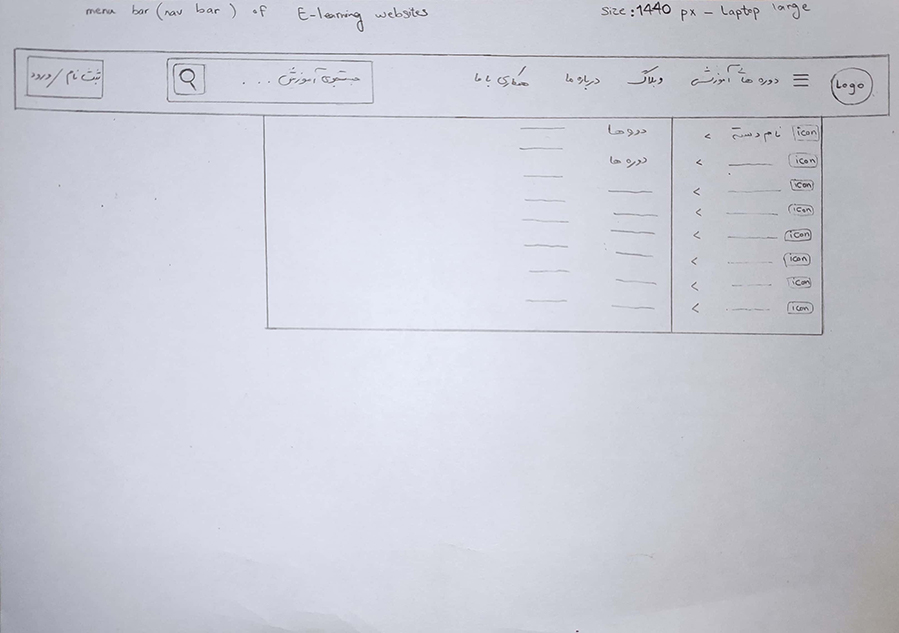 menu bar (nav bar) of E-learning websites
size: 1440 px - Laptop large
Logo ☰ دوره های آموزشی وبلاگ درباره ما همکاری با ما جستجوی آموزش ... ثبت نام / ورود
icon نام دسته > دوره ها
icon > دوره ها
icon >
icon >
icon >
icon >
icon >
icon >